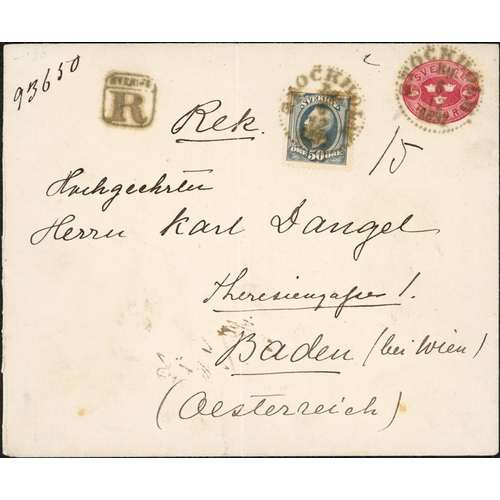 93650
SVERIGE
R
Rek.
STOCKHOLM
SVERIGE
50 ÖRE 50 ÖRE
STOCKHOLM
SVERIGE
15
Hochgeehrten
Herrn Karl Dangel
Theresiengasse 1.
Baden (bei Wien)
(Oesterreich)